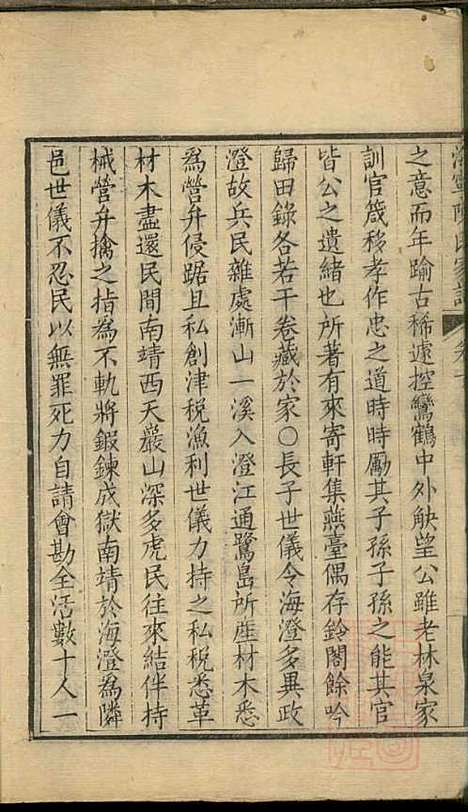 海寧陳氏家譜 卷十
之意而年踰古稀遽控鸞鶴中外觖望公雖老林泉家
訓官箴移孝作忠之道時時勵其子孫子孫之能其官
皆公之遺緒也所著有來寄軒集燕臺偶存鈴閣餘吟
歸田錄各若干卷藏於家○長子世儀令海澄多異政
澄故兵民雜處漸山一溪入澄江通鷺島所產材木悉
爲營弁侵踞且私創津稅漁利世儀力持之私稅悉革
材木盡還民間南靖西天巖山深多虎民往來結伴持
械營弁擒之指爲不軌將鍛鍊成獄南靖於海澄爲隣
邑世儀不忍民以無罪死力自請會勘全活數十人一